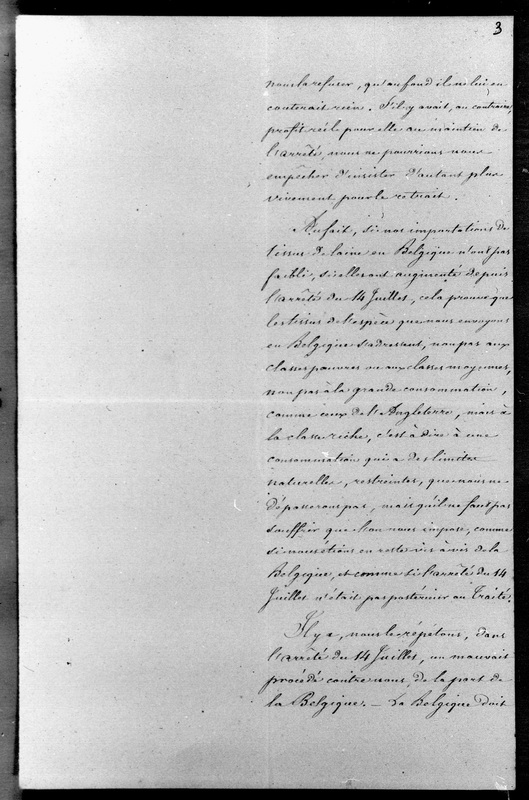 3
nous la refuser, qu'au fond il ne lui en
couterait rien. S'il y avait, au contraire,
profit réél pour elle au maintien de
l'arrêté, nous ne pourrions nous
empêcher d'insister d'autant plus
vivement pour le retrait.
Au fait, si nos importations de
tissus de laine en Belgique n'ont pas
faibli, si elles ont augmenté depuis
l'arrêté du 14 Juillet, cela prouve que
les tissus de l'espèce que nous envoyons
en Belgique s'adressent, non pas aux
classes pauvres ou aux classes moyennes,
non pas à la grande consommation,
comme ceux de l'Angleterre, mais à
la classe riche, c'est à dire à une
consommation qui a des limites
naturelles, restreintes, que nous ne
dépasserons pas, mais qu'il ne faut pas
souffrir que l'on nous impose, comme
si nous étions en reste vis à vis de la
Belgique, et comme si l'arrêté du 14
Juillet n'était pas postérieur au Traité.
Il y a, nous le répétons, dans
l'arrêté du 14 Juillet, un mauvais
procédé contre nous, de la part de
la Belgique. — La Belgique doit